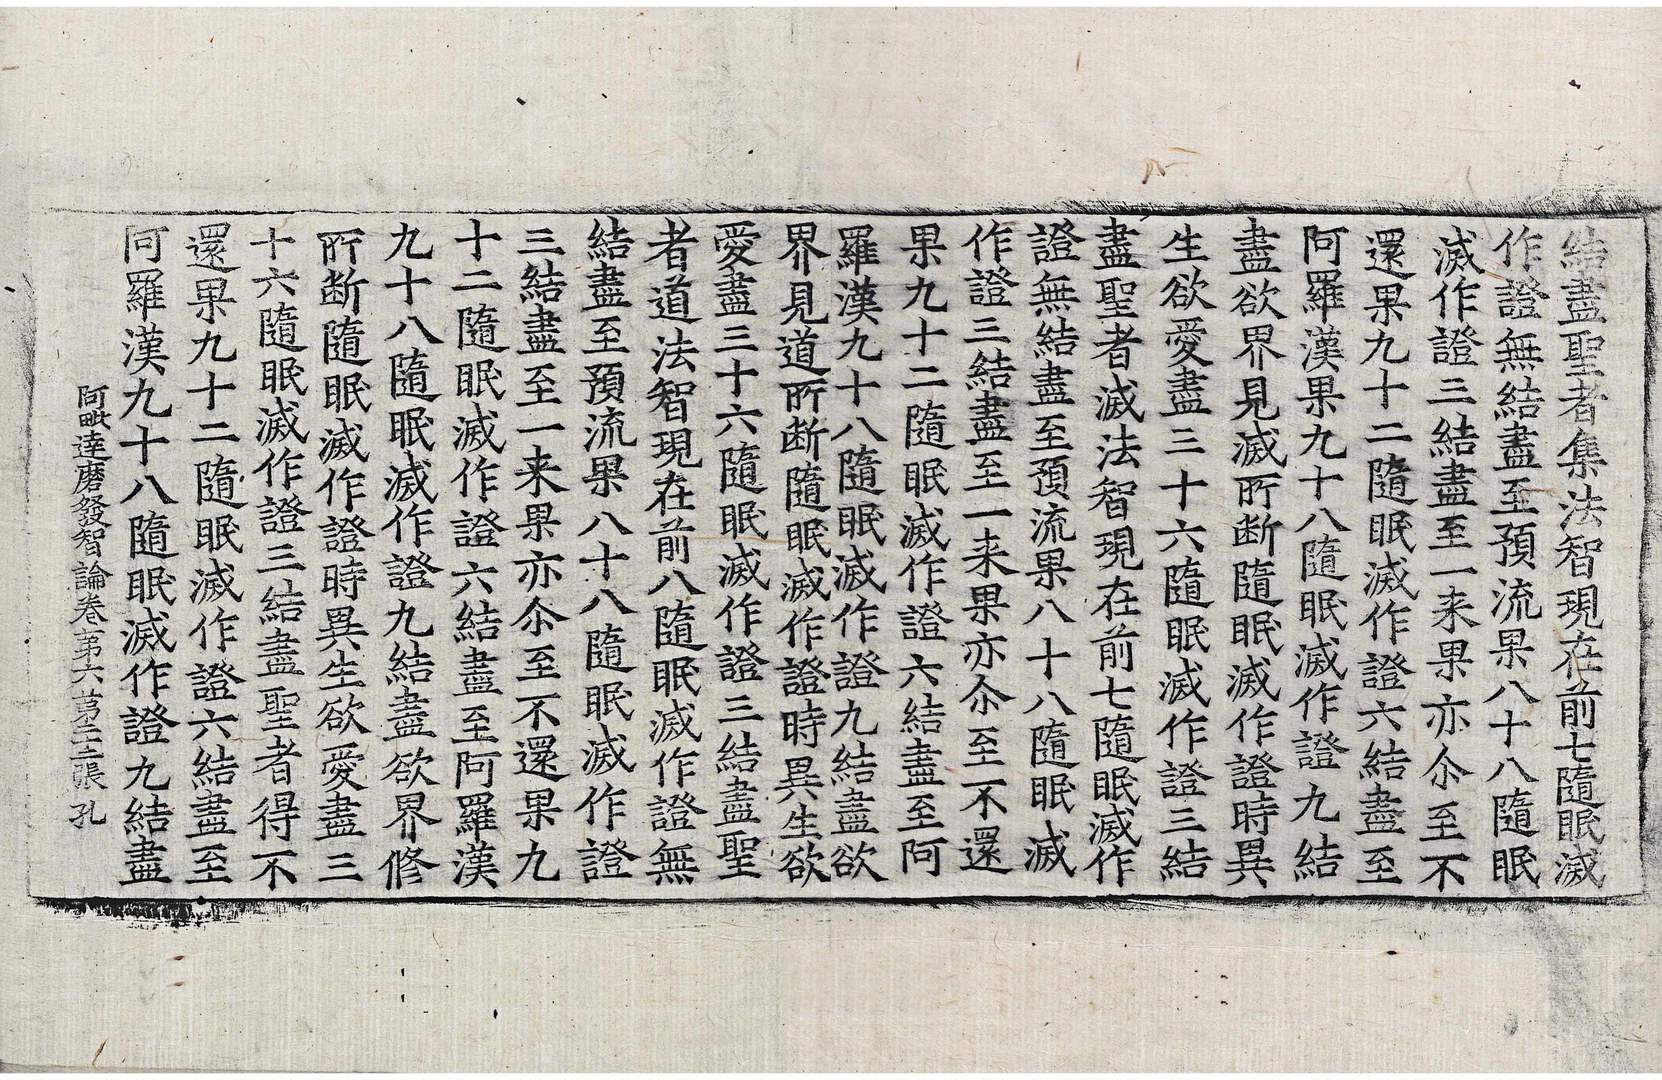 結盡聖者集法智現在前七隨眠滅
作證無結盡至預流果八十八隨眠
滅作證三結盡至一来果亦尒至不
還果九十二隨眠滅作證六結盡至
阿羅漢果九十八隨眠滅作證九結
盡欲界見滅所断隨眠滅作證時異
生欲愛盡三十六隨眠滅作證三結
盡聖者滅法智現在前七隨眠滅作
證無結盡至預流果八十八隨眠滅
作證三結盡至一来果亦尒至不還
果九十二隨眠滅作證六結盡至阿
羅漢九十八隨眠滅作證九結盡欲
界見道所断隨眠滅作證時異生欲
愛盡三十六隨眠滅作證三結盡聖
者道法智現在前八隨眠滅作證無
結盡至預流果八十八隨眠滅作證
三結盡至一来果亦尒至不還果九
十二隨眠滅作證六結盡至阿羅漢
九十八隨眠滅作證九結盡欲界修
所断隨眠滅作證時異生欲愛盡三
十六隨眠滅作證三結盡聖者得不
還果九十二隨眠滅作證六結盡至
阿羅漢九十八隨眠滅作證九結盡
阿毗達磨發智論卷第六第二十三張 孔